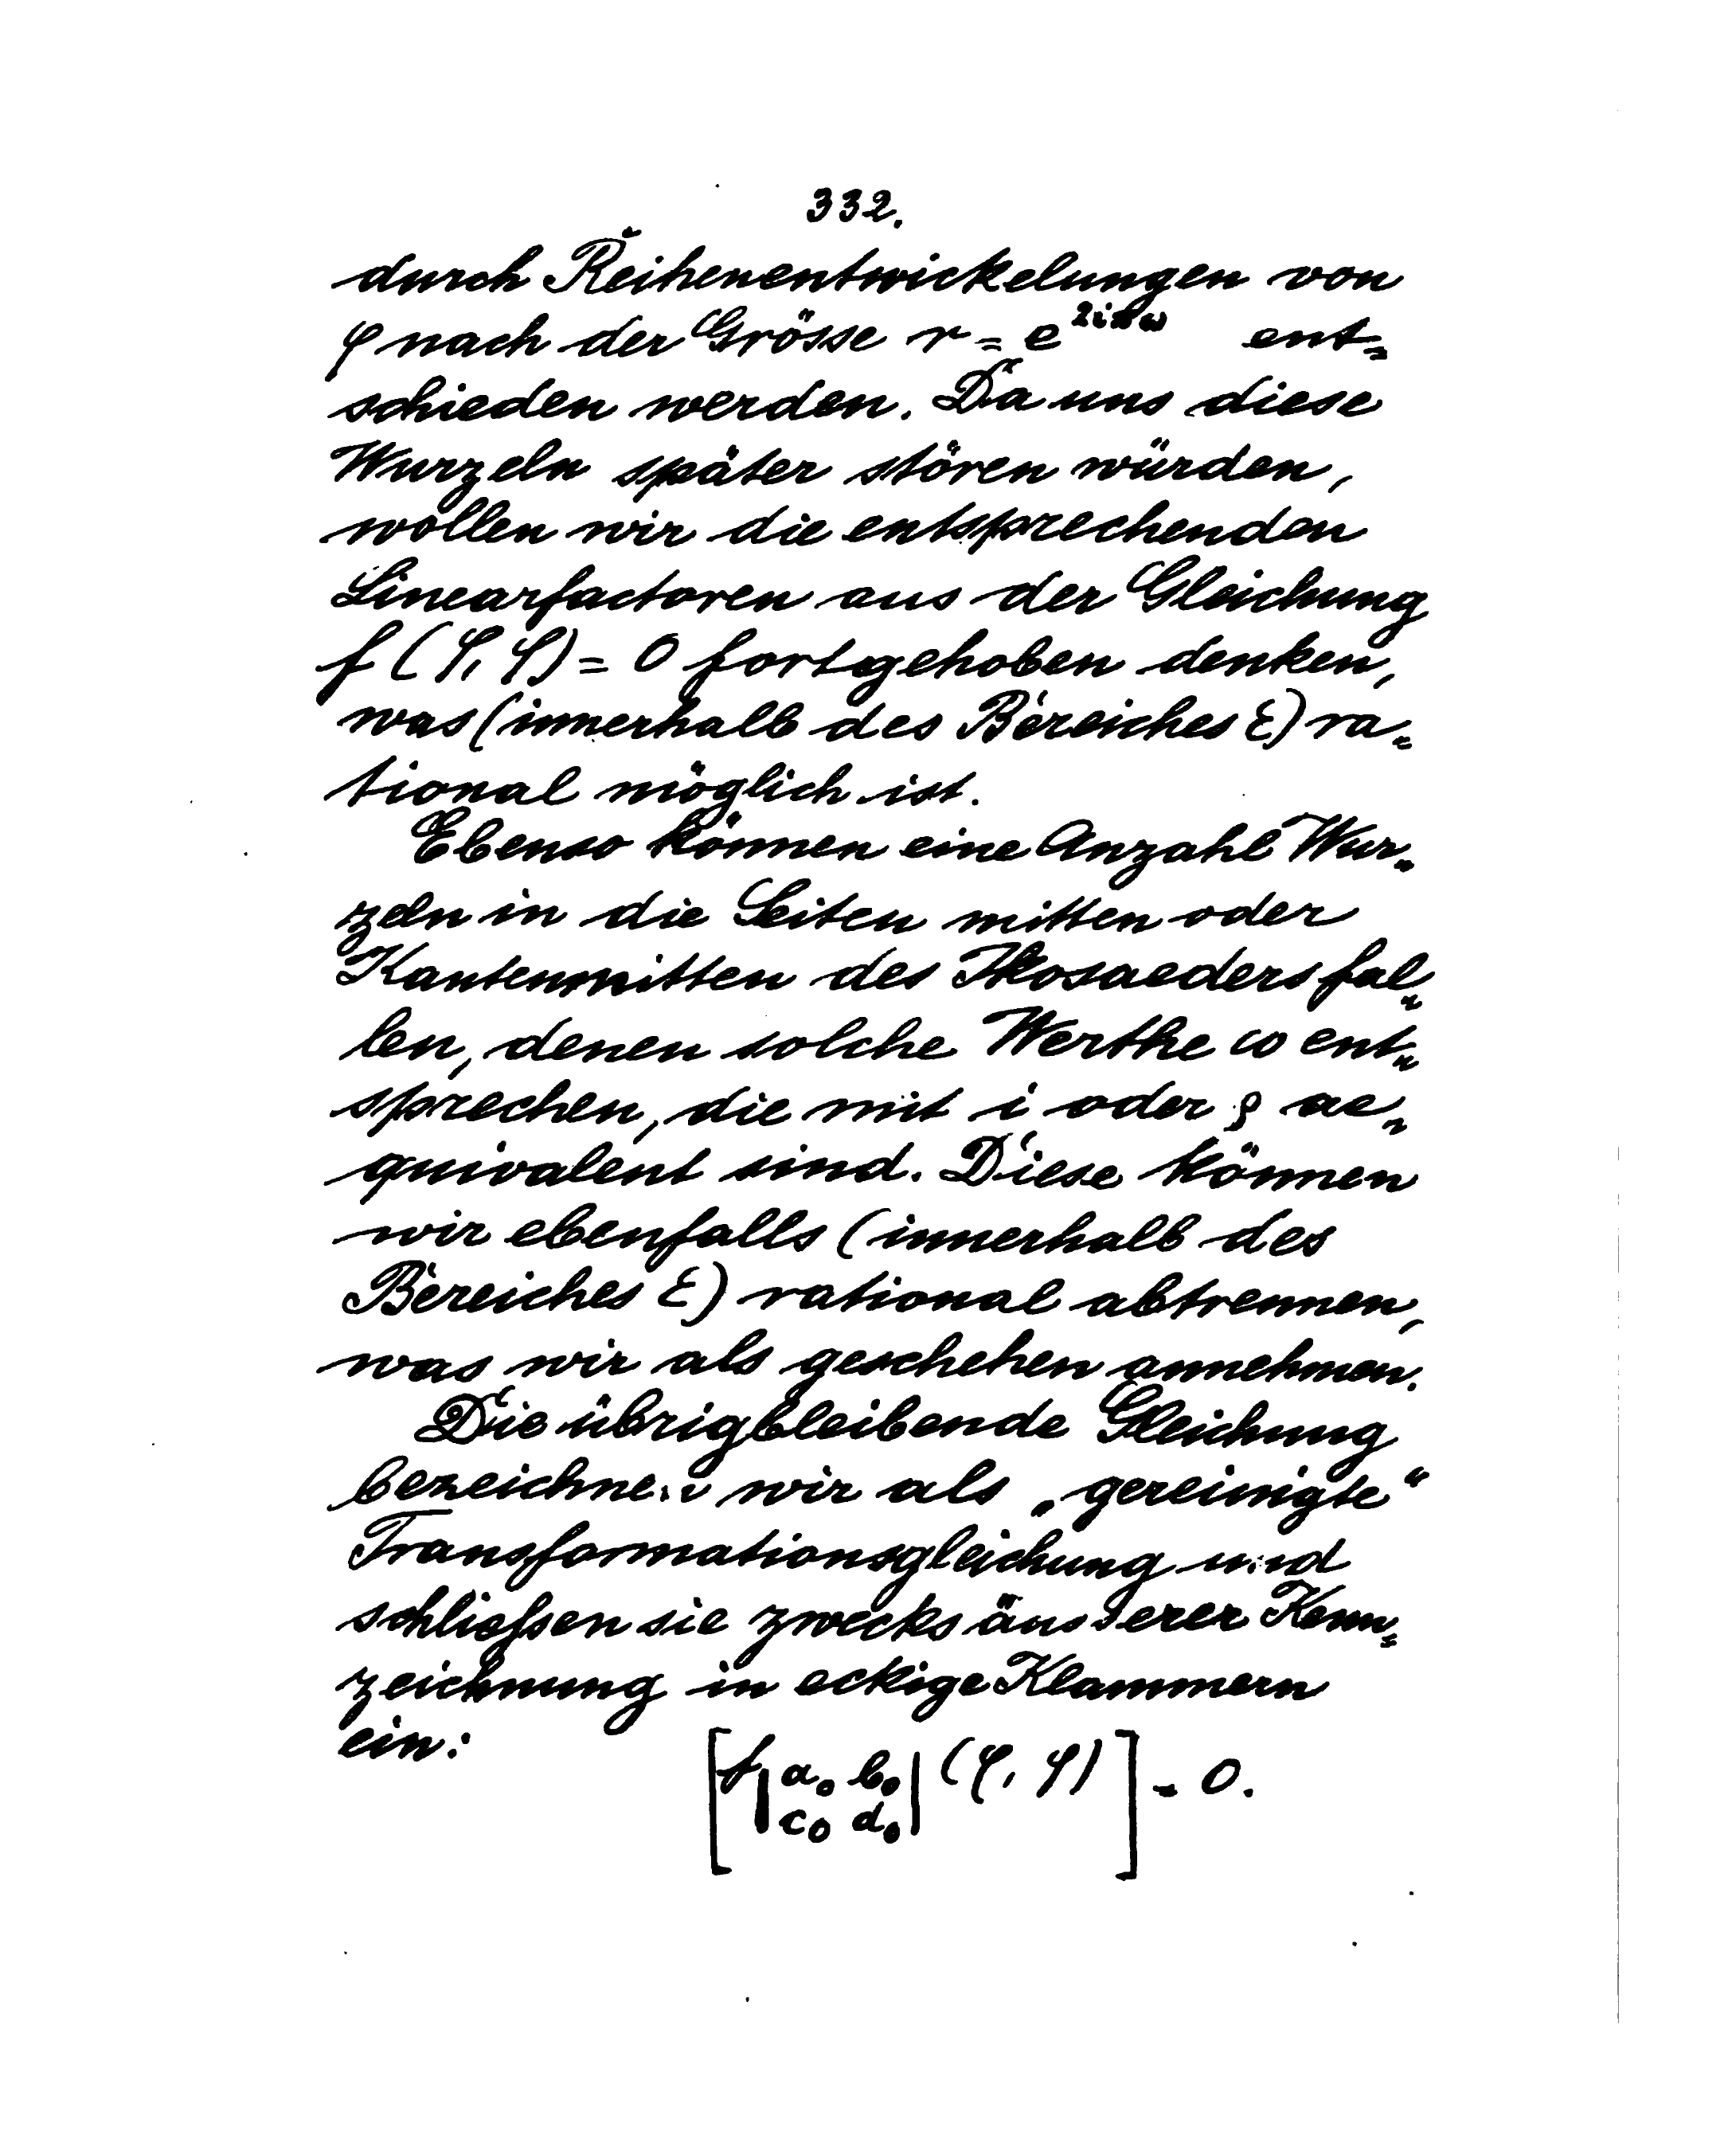 332.
durch Reihenentwickelungen von
φ nach der Grösse r = e^{2iπω} ent=
schieden werden. Da uns diese
Wurzeln später stören würden,
wollen wir die entsprechenden
Linearfactoren aus der Gleichung
f (φ, φ) = 0 fortgehoben denken,
was (innerhalb des Bereiches ε) ra=
tional möglich ist.
Ebenso können eine Anzahl Wur=
zeln in die Seiten mitten oder
Kantenmitten des Ikosaeders fal=
len, denen solche Werthe ω ent=
sprechen, die mit i oder ρ ae=
quivalent sind. Diese können
wir ebenfalls (innerhalb des
Bereiches ε) rational abtrennen,
was wir als geschehen annehmen.
Die übrigbleibende Gleichung
bezeichnen wir als „gereinigte“
Transformationsgleichung und
schließen sie zwecks äusserer Kenn=
zeichnung in eckige Klammern
ein:
[f |a₀ b₀| (φ, φ)] = 0.
|c₀ d₀|